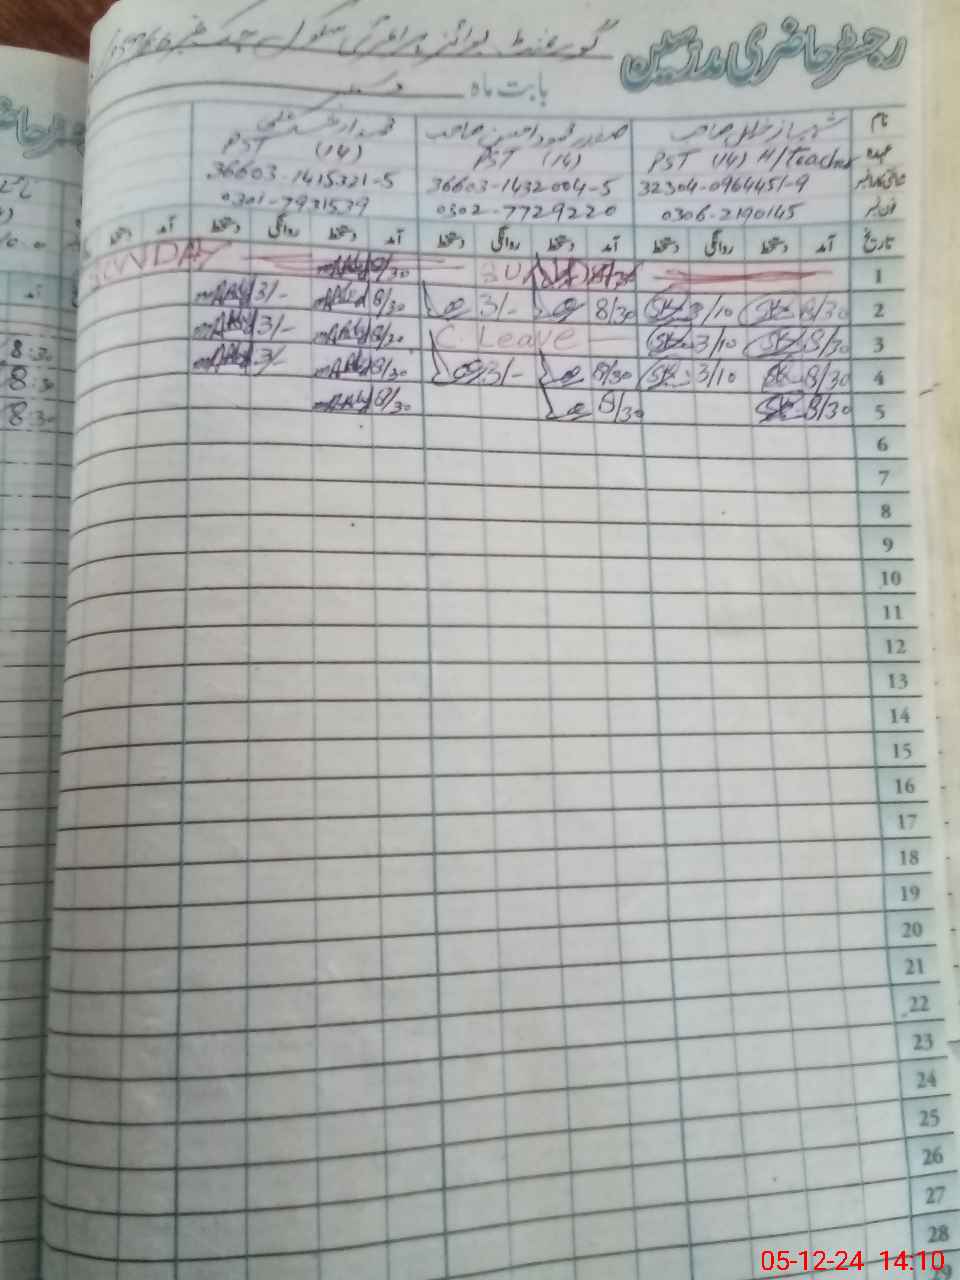 رجسٹر حاضری مدرسین
گورنمنٹ بوائز پرائمری سکول
بابت ماہ
نام شہباز صاحب صفدر محمود احسن صاحب
عہدہ PST (14) H/Teacher PST (14) PST (14)
32304-0964451-9 36603-1432004-5 36603-1415321-5
فون نمبر 0306-2190145 0302-7729220 0301-7931539
تاریخ آمد دستخط روانگی دستخط آمد دستخط روانگی دستخط آمد دستخط روانگی دستخط آمد دستخط
1 8/30 8/30 SUNDAY
2 8/30 3/10 8/30 3/- 8/30 3/-
3 8/30 3/10 C. Leave 8/30 3/-
4 8/30 3/10 8/30 3/- 8/30 3/-
5 8/30 8/30 8/30
6
7
8
9
10
11
12
13
14
15
16
17
18
19
20
21
22
23
24
25
26
27
28
8:30
8:30
8:30
05-12-24 14:10